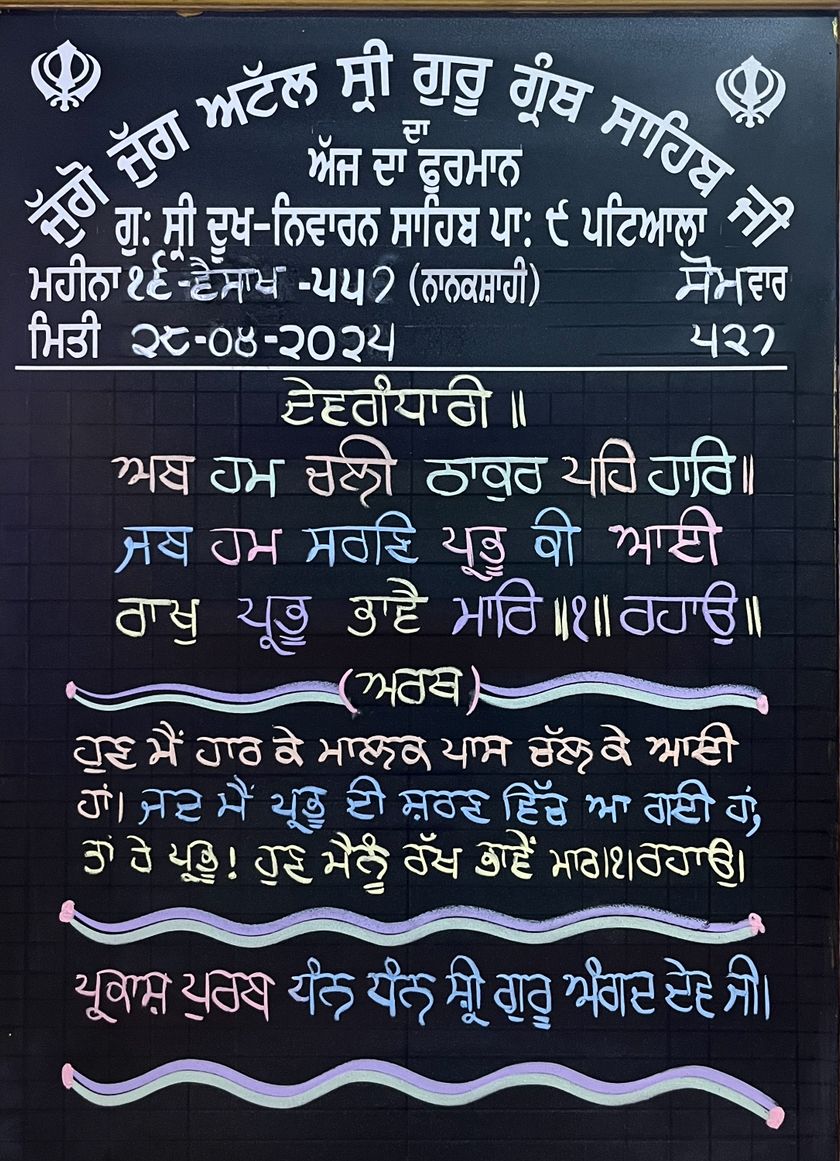 ਜੁੱਗੋ ਜੁੱਗ ਅਟੱਲ ਸ੍ਰੀ ਗੁਰੂ ਗ੍ਰੰਥ ਸਾਹਿਬ ਜੀ
ਦਾ
ਅੱਜ ਦਾ ਫੁਰਮਾਨ
ਗੁ: ਸ੍ਰੀ ਦੂਖ-ਨਿਵਾਰਨ ਸਾਹਿਬ ਪਾ: ੯ ਪਟਿਆਲਾ
ਮਹੀਨਾ ੧੬-ਵੈਸਾਖ -੫੫੭ (ਨਾਨਕਸ਼ਾਹੀ) ਸੋਮਵਾਰ
ਮਿਤੀ ੨੮-੦੪-੨੦੨੫ ੫੨੭
ਦੇਵਗੰਧਾਰੀ ॥
ਅਬ ਹਮ ਚਲੀ ਠਾਕੁਰ ਪਹਿ ਹਾਰਿ॥
ਜਬ ਹਮ ਸਰਣਿ ਪ੍ਰਭੂ ਕੀ ਆਈ
ਰਾਖੁ ਪ੍ਰਭੂ ਭਾਵੈ ਮਾਰਿ ॥੧॥ ਰਹਾਉ॥
(ਅਰਥ)
ਹੁਣ ਮੈਂ ਹਾਰ ਕੇ ਮਾਲਕ ਪਾਸ ਚੱਲ ਕੇ ਆਈ
ਹਾਂ। ਜਦ ਮੈਂ ਪ੍ਰਭੂ ਦੀ ਸ਼ਰਣ ਵਿੱਚ ਆ ਗਈ ਹਾਂ,
ਤਾਂ ਹੇ ਪ੍ਰਭੂ! ਹੁਣ ਮੈਨੂੰ ਰੱਖ ਭਾਵੇਂ ਮਾਰ।੧।ਰਹਾਉ।
ਪ੍ਰਕਾਸ਼ ਪੁਰਬ ਧੰਨ ਧੰਨ ਸ਼੍ਰੀ ਗੁਰੂ ਅੰਗਦ ਦੇਵ ਜੀ।